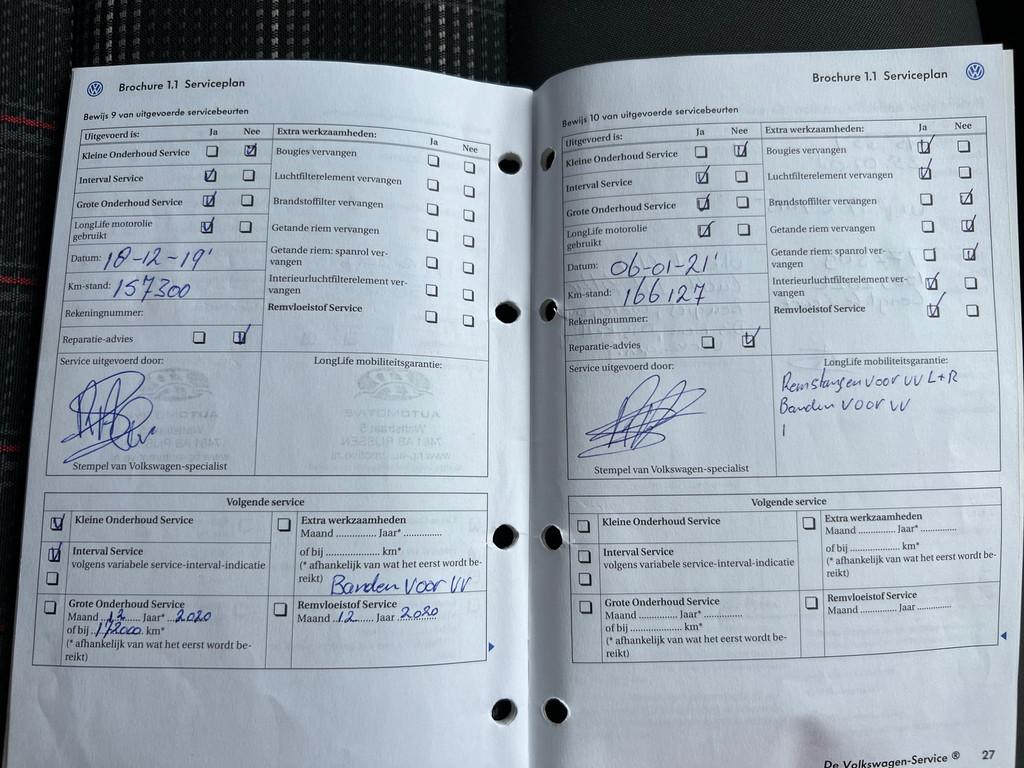 Brochure 1.1 Serviceplan
Bewijs 9 van uitgevoerde servicebeurten
Uitgevoerd is: Ja Nee
Kleine Onderhoud Service
Interval Service
Grote Onderhoud Service
LongLife motorolie
gebruikt
Datum: 18-12-19'
Km-stand: 157300
Rekeningnummer:
Reparatie-advies
Extra werkzaamheden: Ja Nee
Bougies vervangen
Luchtfilterelement vervangen
Brandstoffilter vervangen
Getande riem vervangen
Getande riem: spanrol ver-
vangen
Interieurluchtfilterelement ver-
vangen
Remvloeistof Service
Service uitgevoerd door:
Stempel van Volkswagen-specialist
LongLife mobiliteitsgarantie:
Volgende service
Kleine Onderhoud Service
Interval Service
volgens variabele service-interval-indicatie
Grote Onderhoud Service
Maand ..12...... Jaar* ...2020
of bij ..172000. km*
(* afhankelijk van wat het eerst wordt be-
reikt)
Extra werkzaamheden
Maand ............. Jaar* ..............
of bij .................... km*
(* afhankelijk van wat het eerst wordt be-
reikt) Banden voor VV
Remvloeistof Service
Maand ..12....... Jaar 2020
Brochure 1.1 Serviceplan
Bewijs 10 van uitgevoerde servicebeurten
Uitgevoerd is: Ja Nee
Kleine Onderhoud Service
Interval Service
Grote Onderhoud Service
LongLife motorolie
gebruikt
Datum: 06-01-21'
Km-stand: 166127
Rekeningnummer:
Reparatie-advies
Extra werkzaamheden: Ja Nee
Bougies vervangen
Luchtfilterelement vervangen
Brandstoffilter vervangen
Getande riem vervangen
Getande riem: spanrol ver-
vangen
Interieurluchtfilterelement ver-
vangen
Remvloeistof Service
Service uitgevoerd door:
Stempel van Volkswagen-specialist
LongLife mobiliteitsgarantie:
Remslangen voor VV L+R
Banden voor VV
Volgende service
Kleine Onderhoud Service
Interval Service
volgens variabele service-interval-indicatie
Grote Onderhoud Service
Maand .................... Jaar* ..............
of bij .................... km*
(* afhankelijk van wat het eerst wordt be-
reikt)
Extra werkzaamheden
Maand ............. Jaar* .............
of bij .................... km*
(* afhankelijk van wat het eerst wordt be-
reikt)
Remvloeistof Service
Maand ............. Jaar .............
De Volkswagen-Service ® 27